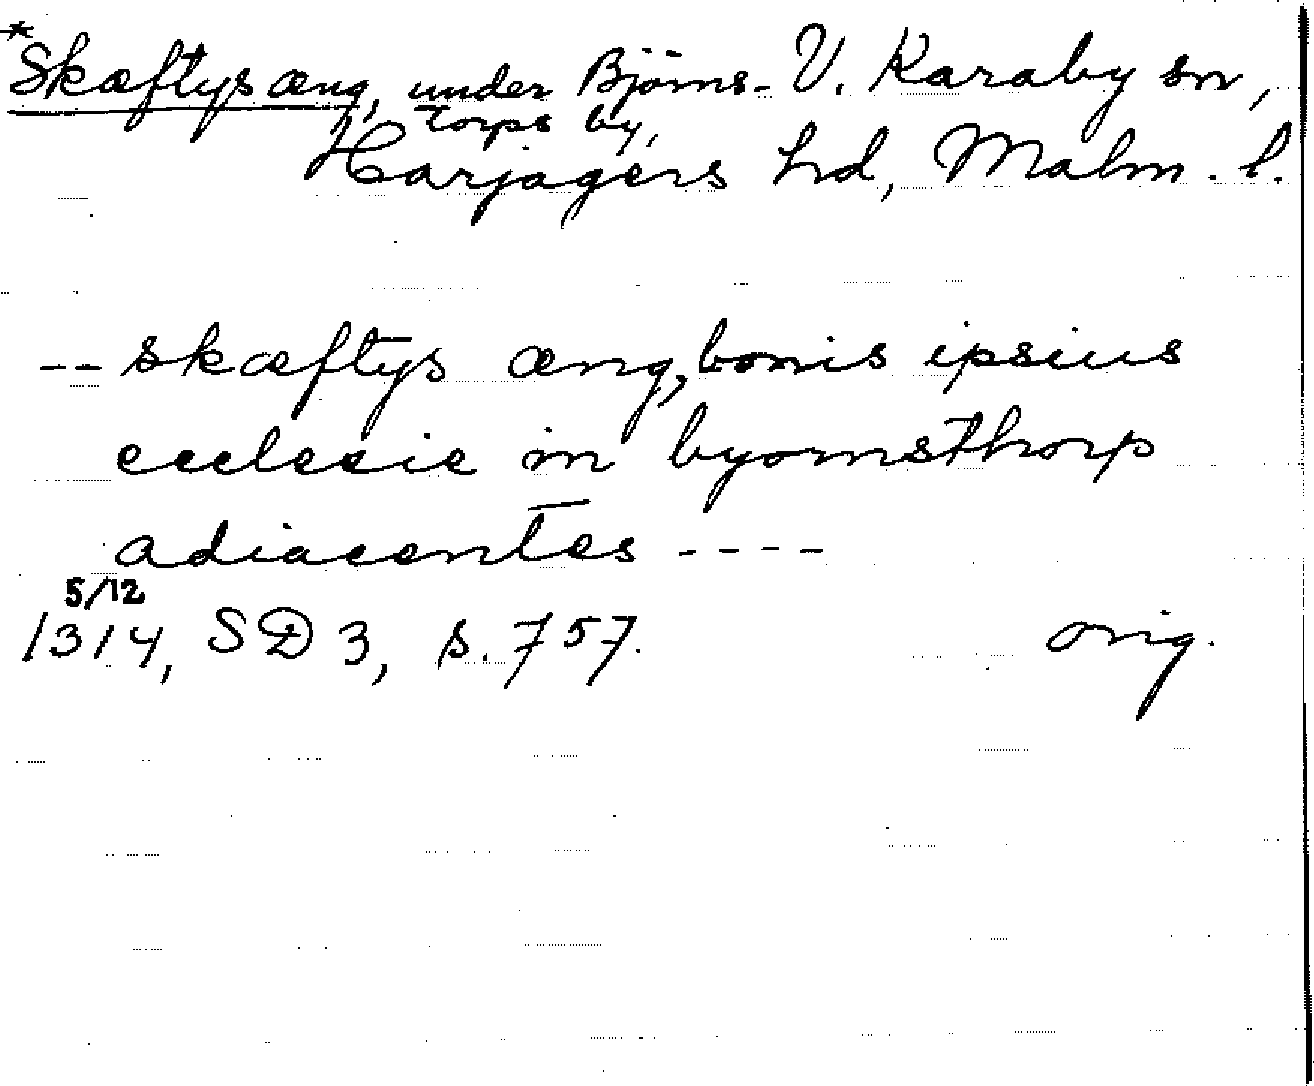 *Skæftysæng, under Björns- V. Karaby sn,
torps by,
Harjagers hd, Malm. l.
-- skæftys æng, bonis ipsius
ecclesie in byornsthorp
adiacentes ----
5/12
1314, SD 3, s. 757. orig.